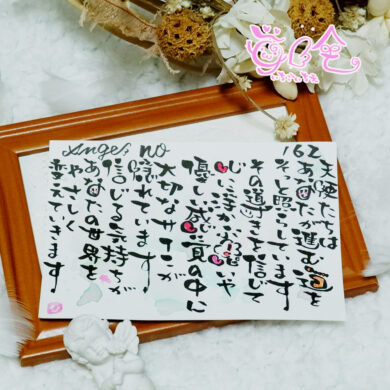 Angel no 162
天使たちは
あなたが進む道を
そっと照らしています
その導きを信じて
心に浮かぶ想いや
優しい感覚の中に
大切なサインが
隠れています
信じる気持ちが
あなたの世界を
やさしく
変えていきます